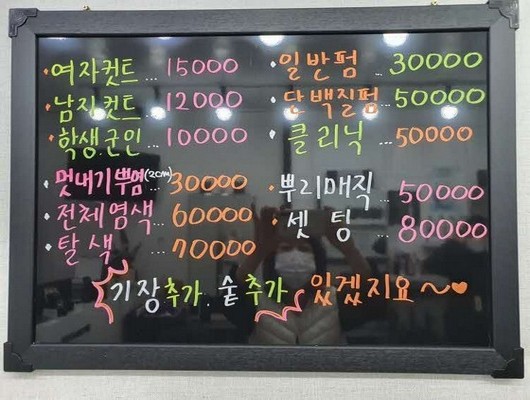 여자컷트 ... 15000
남자컷트 ... 12000
학생.군인 ... 10000
멋내기뿌염(2cm) 30000
전체염색 ... 60000
탈색 ... 70000
일반펌 ... 30000
단백질펌 ... 50000
클리닉 ... 50000
뿌리매직 ... 50000
셋팅 ... 80000
기장추가. 숱추가 있겠지요~♥